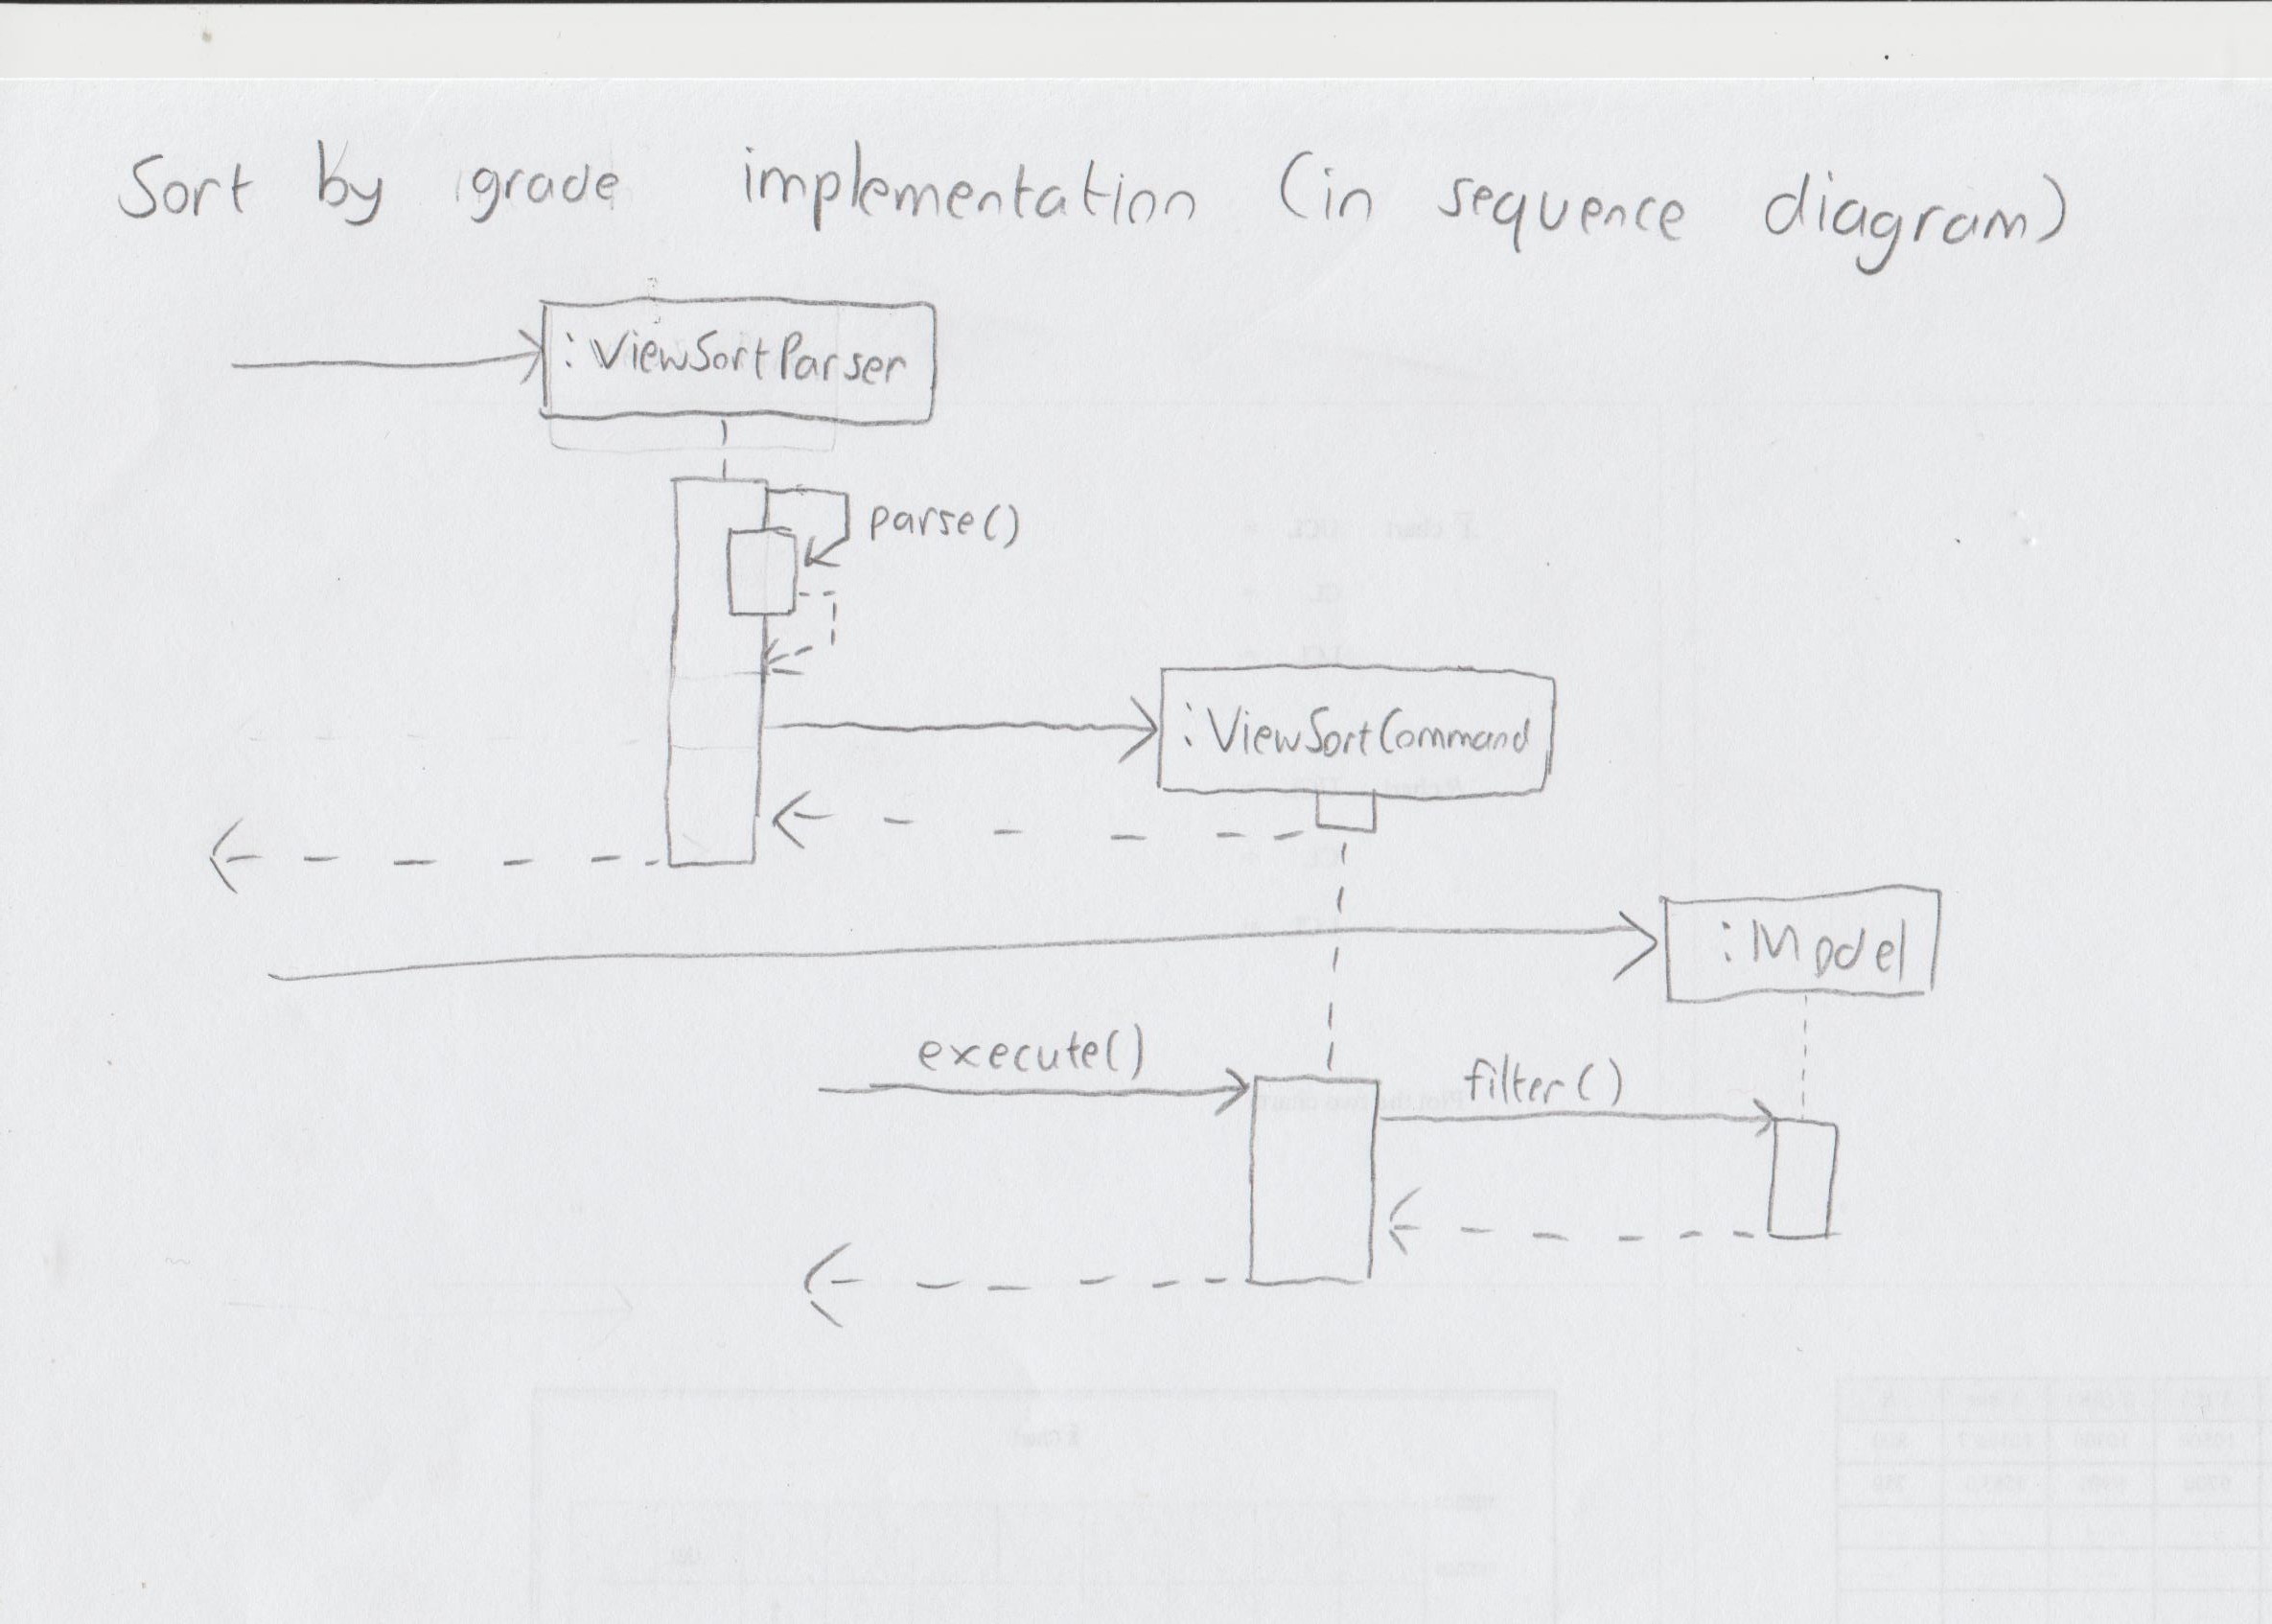 Sort by grade implementation (in sequence diagram)
:ViewSortParser
parse()
:ViewSortCommand
:Model
execute()
filter()